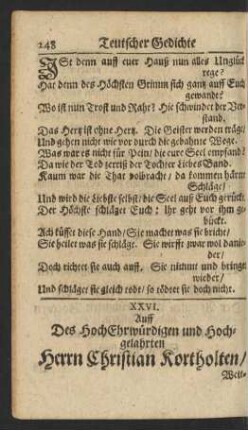 148 Teutscher Gedichte
ISt denn auff euer Hauß nun alles Unglück
rege?
Hat denn des Höchsten Grimm sich gantz auff Euch
gewandt?
Wo ist nun Trost und Raht? Hie schwindet der Ver-
stand.
Das Hertz ist ohne Hertz. Die Geister werden träge
Und gehen nicht wie vor durch die gebahnte Wege.
Was war es nicht für Pein/ die eure Seel empfand?
Da wie der Tod zerriß der Tochter Liebes Band/
Kaum war die That volbracht/ da kommen härtre
Schläge/
Und wird die Liebste selbst/ die Seel auß Euch gerückt.
Der Höchste schläget Euch: Ihr geht vor ihm ge-
bückt.
Ach küsset diese Hand/ Sie machet was sie bricht/
Sie heilet was sie schläge. Sie wirfft zwar wol danie-
der/
Doch richtet sie auch auff. Sie nimmt und bringt
wieder/
Und schläget sie gleich todt/ so tödtet sie doch nicht.
XXVI.
Auff
Des HochEhrwürdigen und Hoch-
gelahrten
Herrn Christian Kortholten/
Welt-